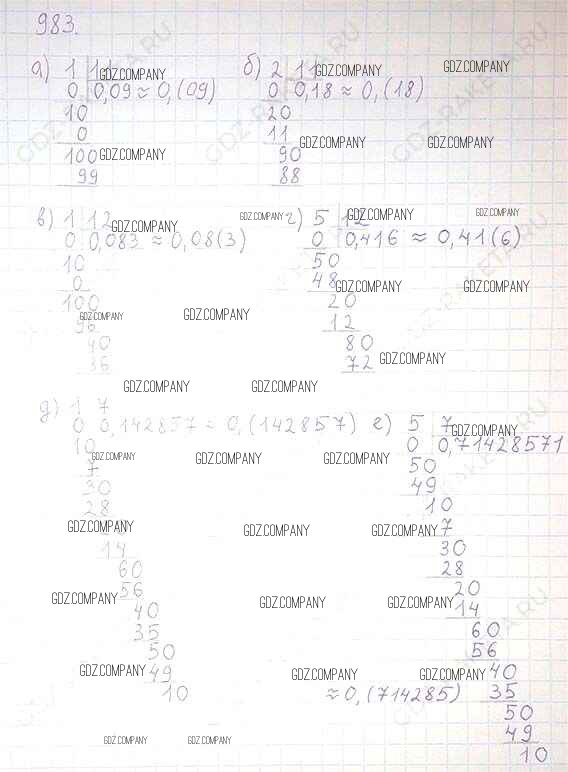 983.
а) 1 11 б) 2 11
0 0,09 ≈ 0,(09) 0 0,18 ≈ 0,(18)
10 20
0 11
100 90
99 88
в) 1 12 г) 5 12
0 0,083 ≈ 0,08(3) 0 0,416 ≈ 0,41(6)
10 50
0 48
100 20
96 12
40 80
36 72
д) 1 7 е) 5 7
0 0,142857 ≈ 0,(142857) 0 0,71428571
10 50
7 49
30 10
28 7
14 30
60 28
56 20
40 14
35 60
50 56
49 40
10 ≈ 0,(714285) 35
50
49
10
GDZ.COMPANY
GDZ-RAKETA.RU